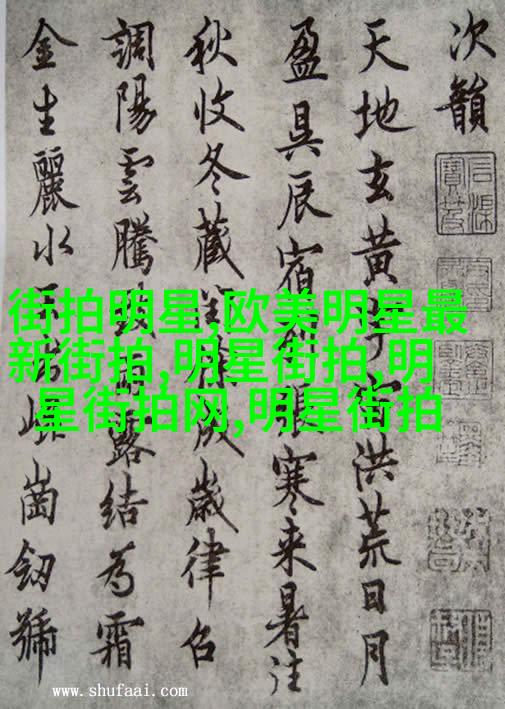 次韻
天地玄黃宇宙洪荒日月
盈昃辰宿列張寒来暑往
秋收冬藏閏餘成歲律召
調陽雲騰致雨露結為霜
金生麗水玉出崐崗劒號
街拍明星,欧美明星最
新街拍,明星街拍,明
星街拍网,明星街拍
www.shufaai.com